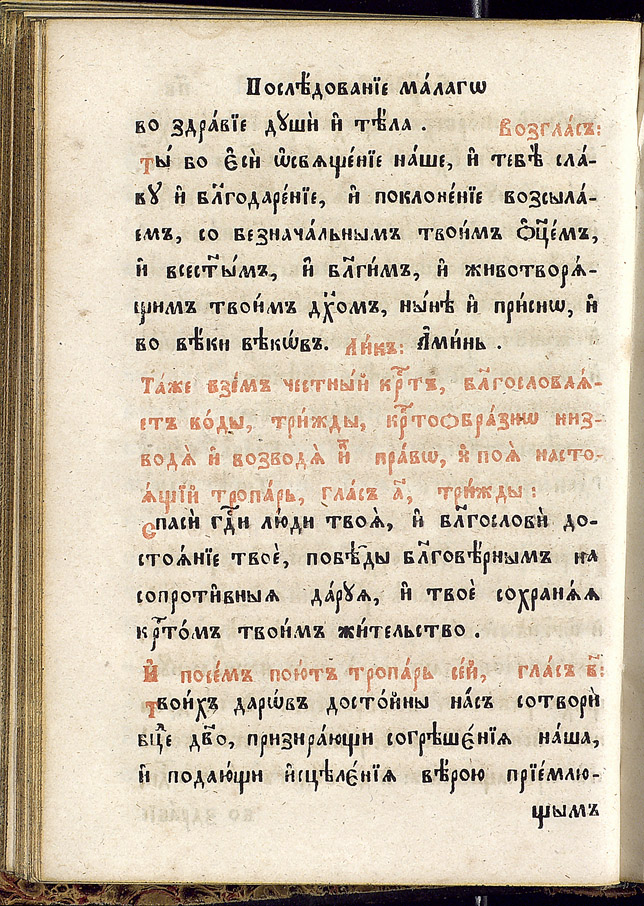 Послѣ́дованїе ма́лагѡ
во здра́вїе дꙋшѝ и҆ тѣ́ла . Возгла́съ:
Ты́ бо є҆сѝ ѡ҆свѧще́нїе на́ше, и҆ тебѣ̀ сла́-
вꙋ и҆ бл҃годаре́нїе, и҆ поклоне́нїе возсыла́-
емъ, со безнача́льнымъ твои́мъ ѻ҆ц҃е́мъ,
и҆ всест҃ы́мъ, и҆ бл҃ги́мъ, и҆ животворѧ́-
щимъ твои́мъ дх҃омъ, ны́нѣ и҆ при́снѡ, и҆
во вѣ́ки вѣкѡ́въ. Ли́къ: А҆ми́нь .
Та́же взе́мъ честны́й крⷭ҇тъ, бл҃гословлѧ́-
етъ во́ды, три́жды, крⷭ҇тоѻбра́знѡ низ-
водѧ̀ и҆ возводѧ̀ и҆̀ пра́вѡ, и҆ поѧ̀ насто-
ѧ́щїй тропа́рь, гла́съ а҃, три́жды :
Спасѝ гдⷭ҇и лю́ди твоѧ̑, и҆ бл҃гословѝ до-
стоѧ́нїе твоѐ, побѣ́ды бл҃говѣ̑рнымъ на
сопроти̑вныѧ да́рꙋѧ, и҆ твоѐ сохранѧ́ѧ
крⷭ҇то́мъ твои́мъ жи́тельство .
И҆ посе́мъ пою́тъ тропа́рь се́й, гла́съ в҃:
Твои́хъ дарѡ́въ досто́йны на́съ сотворѝ
бц҃е дв҃о, призира́ющи согрѣшє́нїѧ на̑ша,
и҆ подаю́щи и҆сцѣлє́нїѧ вѣ́рою прїе́млю-
щымъ